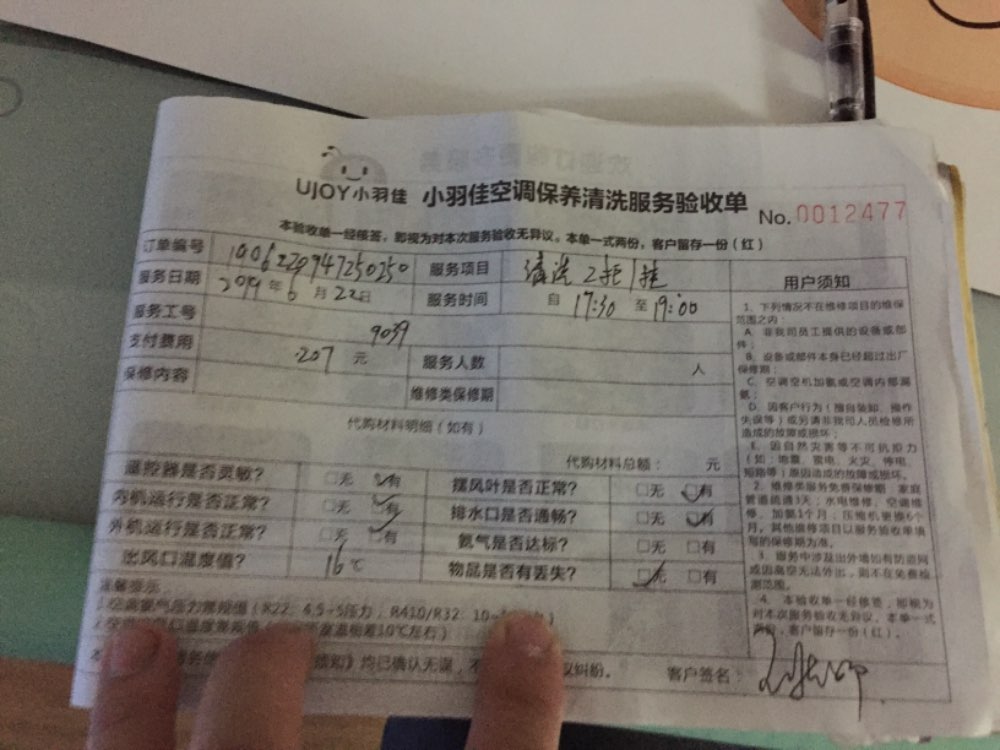 UJOY小羽佳 小羽佳空调保养清洗服务验收单 No.0012477
本验收单一经核签，即视为对本次服务验收无异议。本单一式两份，客户留存一份（红）
订单编号 服务项目 清洗2拒1挂 用户须知
服务日期 年6月22日 服务时间 自17:30至19:00
服务工号 9039
支付费用 207元 服务人数 人
保修内容 维修类保修期
代购材料明细（如有）
代购材料总额： 元
遥控器是否灵敏？ □无 □有 摆风叶是否正常？ □无 □有
内机运行是否正常？ □无 □有 排水口是否通畅？ □无 □有
外机运行是否正常？ □无 □有 氨气是否达标？ □无 □有
出风口温度值？ 16℃ 物品是否有丢失？ □无 □有
1、下列情况不在维修项目的维保
范围之内：
A、非我司员工提供的设备或部
件；
B、设备或部件本身已经超过出厂
保修期；
C、空调空机加氨或空调内部漏
氨；
D、因客户行为（擅自装卸、操作
失误等）或另请非我司人员检修所
造成的故障或损坏；
E、因自然灾害等不可抗拒力
（如：地震、雷电、火灾、停电、
短路等）原因造成的故障或损坏。
2、维修类服务免费保修期：家庭
管道疏通3天；水电维修、空调维
修、加氨1个月；压缩机更换6个
月。其他维修项目以服务验收单填
写的保修期为准。
3、服务中涉及出外墙如有防盗网
或因高空无法外出，则不在免费检
测范围。
4、本验收单一经核签，即视为
对本次服务验收无异议。本单一式
两份，客户留存一份（红）。
温馨提示：
1.空调氨气压力常规值（R22：4.5-5压力，R410/R32：10-
温差10℃左右）
均已确认无误，不 议纠纷。 客户签名：